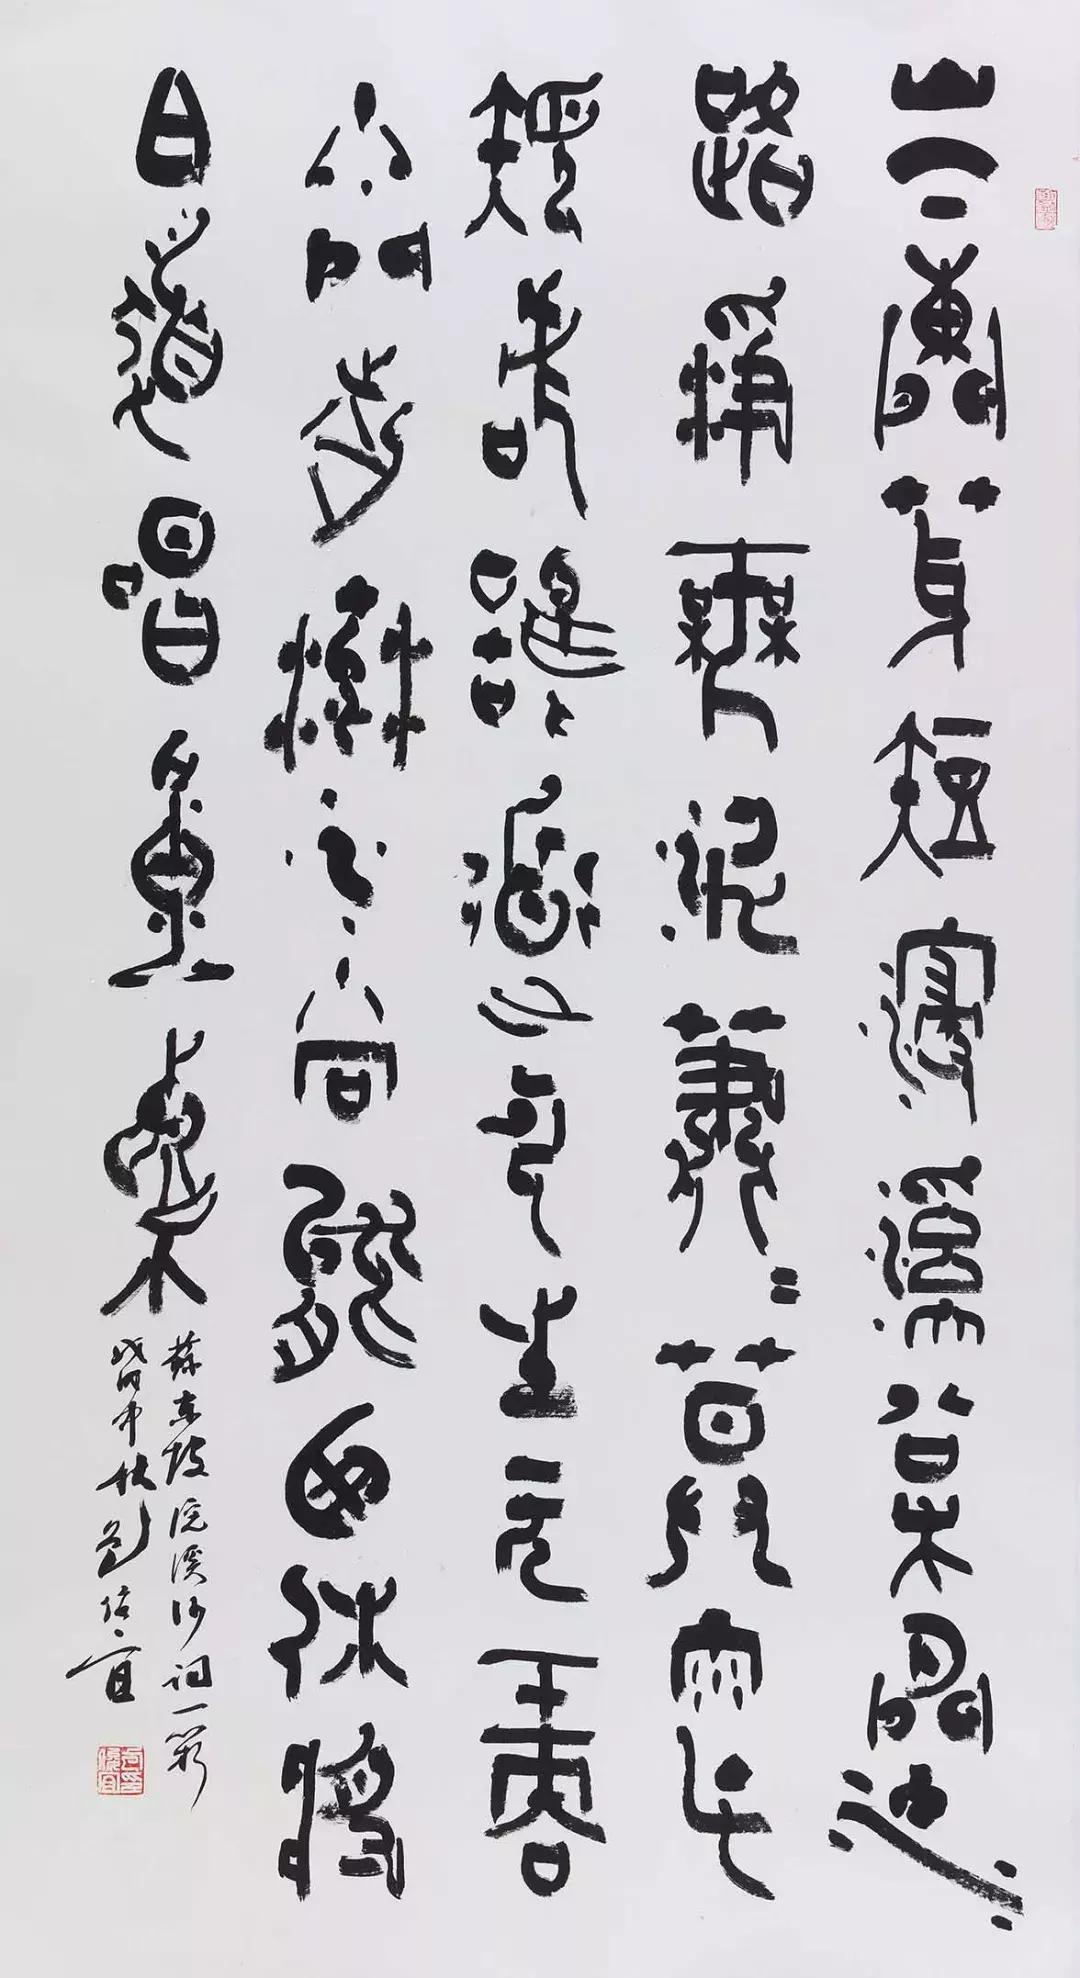 山下蘭芽短浸溪松間沙
路淨無泥蕭蕭暮雨子
規啼誰道人生无再
少門前流水尚能西休將
白髮唱黃雞
蘇東坡浣溪沙詞一闋
中秋